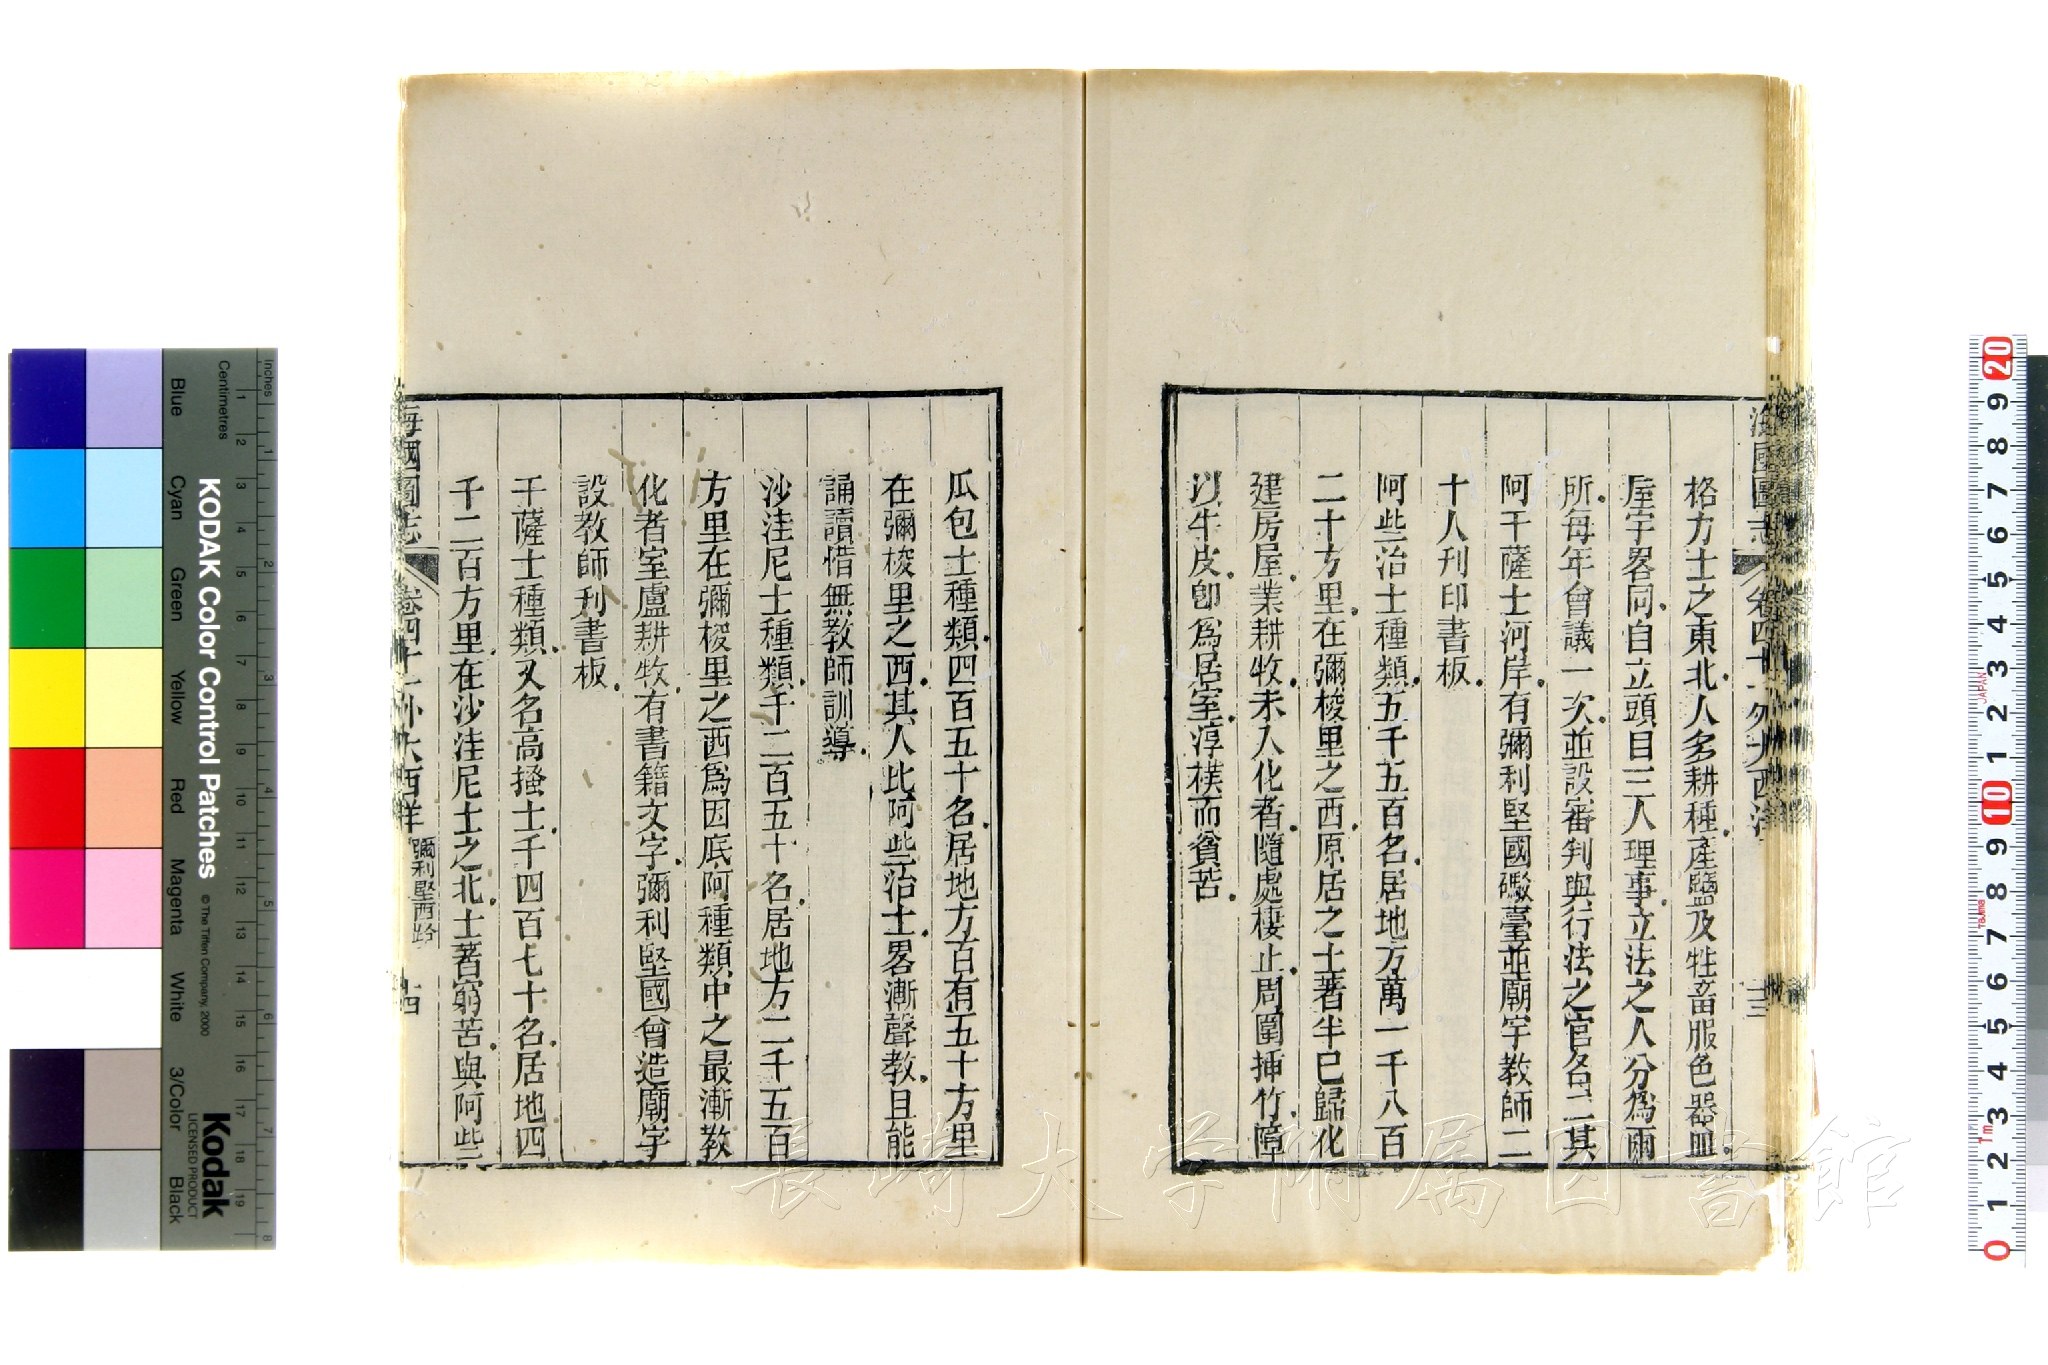 海國圖志 卷四十一外大西洋 十三
格力士之東北人多耕種產鹽及牲畜服色器皿
屋宇畧同自立頭目三人理事立法之人分爲兩
所每年會議一次並設審判與行法之官各二其
阿干薩士河岸有彌利堅國礮臺並廟宇教師二
十人刊印書板
阿些治士種類五千五百名居地方萬一千八百
二十方里在彌梭里之西原居之土著半已歸化
建房屋業耕牧未入化者隨處棲止周圍揷竹障
以牛皮卽爲居室淳樸而貧苦
瓜包士種類四百五十名居地方百有五十方里
在彌梭里之西其人比阿些治士畧漸聲教且能
誦讀惜無教師訓導
沙洼尼士種類千二百五十名居地方二千五百
方里在彌梭里之西爲因底阿種類中之最漸教
化者室廬耕牧有書籍文字彌利堅國曾造廟宇
設教師刋書板
干薩士種類又名高搔士千四百七十名居地四
千二百方里在沙洼尼士之北土著窮苦與阿些
海國圖志 卷四十一外大西洋 彌利堅西路 十四
長崎大学附属図書館
KODAK Color Control Patches © The Tiffen Company, 2000
Kodak
LICENSED PRODUCT
Inches 1 2 3 4 5 6 7 8
Centimetres 1 2 3 4 5 6 7 8 9 10 11 12 13 14 15 16 17 18 19
Blue Cyan Green Yellow Red Magenta White 3/Color Black
20 9 8 7 6 5 4 3 2 1 10 9 8 7 6 5 4 3 2 1 0
JAPAN
Tajima